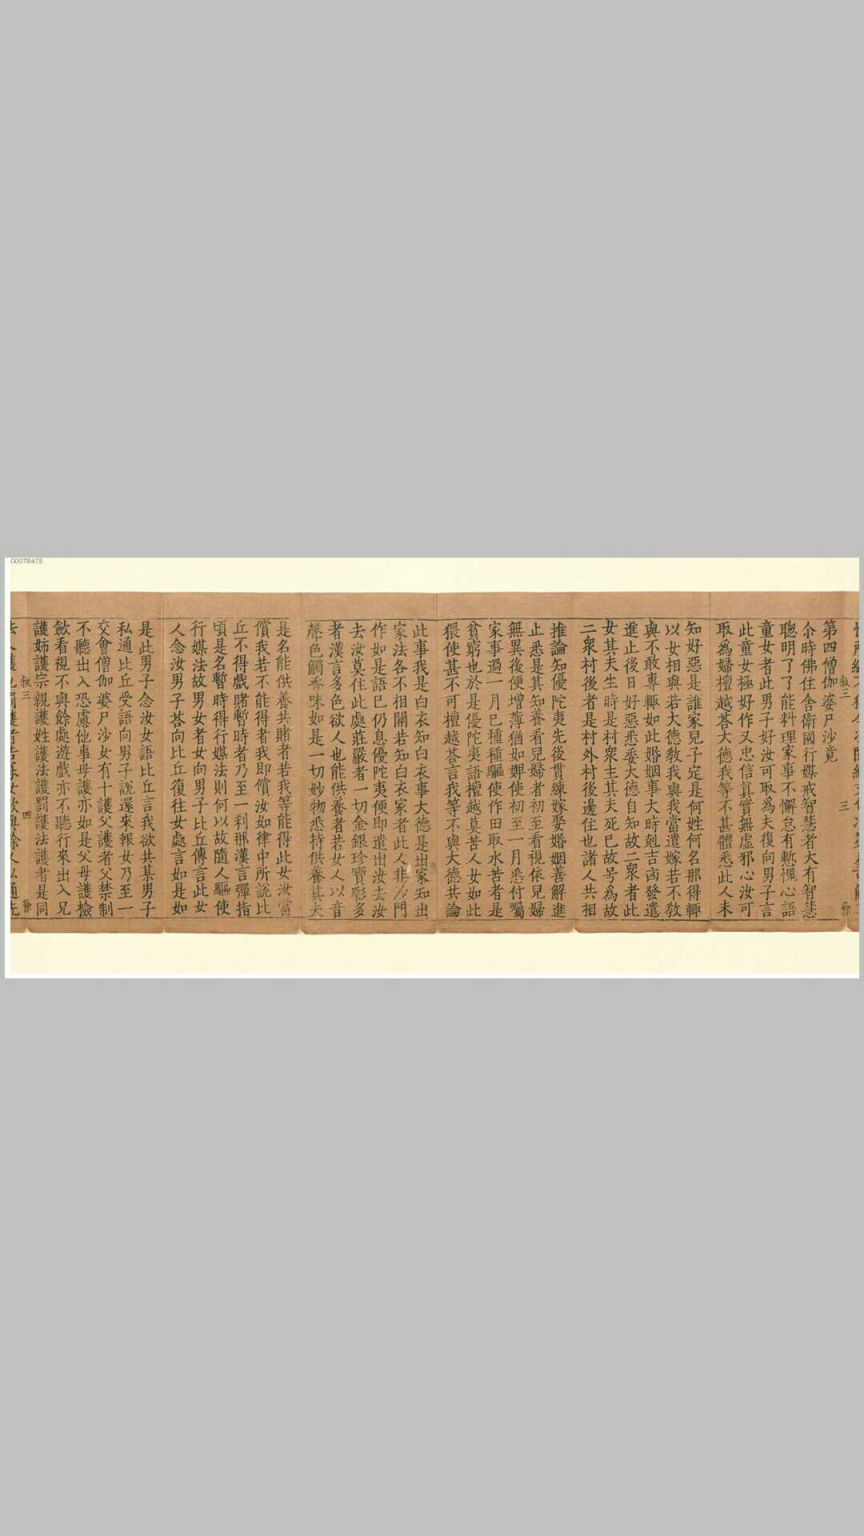 00078475
第四僧伽婆尸沙竟
尒時佛住舍衛國行媒戒智慧者大有智慧
聰明了了能料理家事不懈怠有慙愧心語
童女者此男子好汝可取爲夫復向男子言
此童女極好作又忠信真實無虛邪心汝可
取爲婦檀越荅大德我等不甚體悉此人未
知好惡是誰家兒子定是何姓何名那得輒
以女相與若大德敎我與我當遣嫁若不敎
與不敢專輒如此婚姻事大時剋吉凶發遣
進止後日好惡悉委大德自知故二衆者此
女其夫生時是村衆主其夫死已故号爲故
二衆村後者是村外村後邊住也諸人共相
推論知優陀夷先後貫練嫁娶婚姻善解進
止悉是其知養看兒婦者初至看視依兒婦
無異後便增薄猶如婢使初至一月悉付囑
家事過一月已種種驅使作田取水苦者是
貧窮也於是優陀夷語檀越莫苦人女如此
猥使甚不可檀越荅言我等不與大德共論
此事我是白衣知白衣事大德是出家知出
家法各不相關若知白衣家者此人非沙門
作如是語已仍息優陀夷便即遣出汝去汝
去汝莫住此處莊嚴者一切金銀珍寶彫多
者漢言多色欲人也能供養者若女人以音
聲色觸香味如是一切妙物悉持供養其夫
是名能供養共賭者若我等能得此女汝當
償我若不能得者我即償汝如律中所說比
丘不得戲賭暫時者乃至一刹那漢言彈指
頃是名暫時得行媒法則何以故隨人驅使
行媒法故男女者女向男子比丘傳言此女
人念汝男子荅向比丘復往女處言如是如
是此男子念汝女語比丘言我欲共某男子
私通比丘受語向男子說還來報女乃至一
交會僧伽婆尸沙女有十護父護者父禁制
不聽出入恐慮他事母護亦如是父母護檢
斂看視不與餘處遊戲亦不聽行來出入兄
護姊護宗親護姓護法護罰護法護者是同